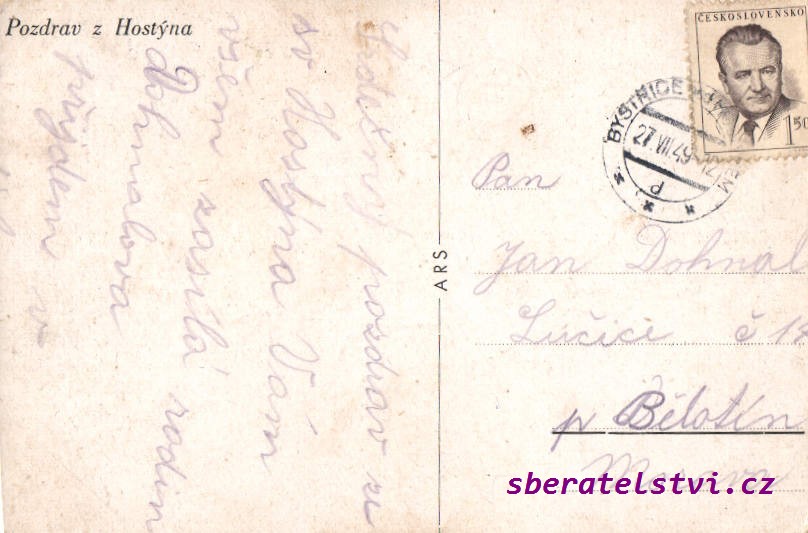 Pozdrav z Hostýna
Srdečný pozdrav ze
sv Hostýna Vám
všem zasílá rodin
Dohnalova
přijdem v
ARS
ČESKOSLOVENSKO
1.50
BYSTŘICE POD HOSTÝNEM
27.VII.49-12
P
Pan
Jan Dohnal
Lučice č 1
p Bělotín
Morava
sberatelstvi.cz